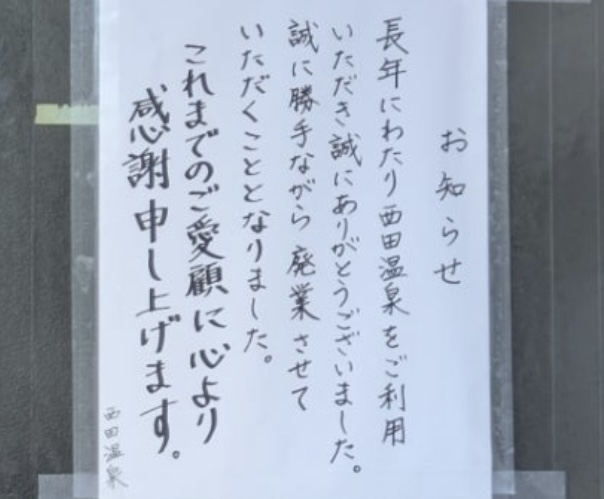 お知らせ
長年にわたり西田温泉をご利用
いただき誠にありがとうございました。
誠に勝手ながら廃業させて
いただくこととなりました。
これまでのご愛顧に心より
感謝申し上げます。
西田温泉